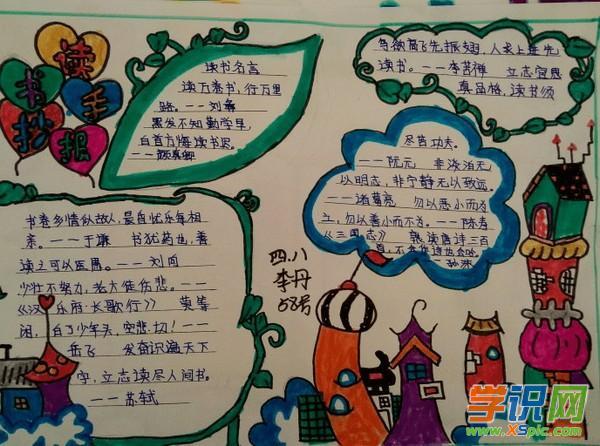 读
书
手
抄
报
读书名言
读万卷书，行万里
路。——刘彝
黑发不知勤学早，
白首方悔读书迟。
——颜真卿
鸟欲高飞先振翅，人求上进先
读书。——李苦禅 立志宜思
真品格，读书须
尽苦功夫。
——阮元 非淡泊无
以明志，非宁静无以致远。
——诸葛亮 勿以恶小而为
之，勿以善小而不为。——陈寿
《三国志》 熟读唐诗三百
首，不会作诗也会吟。
——孙洙
书卷多情似故人，晨昏忧乐每相
亲。——于谦 书犹药也，善
读之可以医愚。——刘向
少壮不努力，老大徒伤悲。——
《汉乐府·长歌行》 莫等
闲，白了少年头，空悲切！——
岳飞 发奋识遍天下
字，立志读尽人间书。
——苏轼
四.八
李丹
58号
学识网
www.XSpic.com